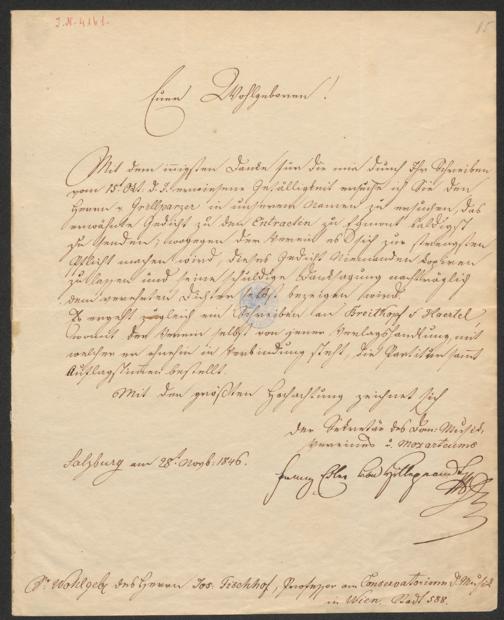 I.N. 4161.
15
Euer Wohlgeboren!
Mit dem innigsten Danke für die mir durch Ihr Schreiben
vom 15t Okt: d. J. erwiesene Gefälligkeit ersuche ich Sie den
Herrn v Grillparzer in unserem Namen zu ersuchen, das
erwähnte Gedicht zu den Entracten zu Egmont baldigst
zu senden; wogegen der Verein es sich zur strengsten
Pflicht machen wird dieses Gedicht Niemanden kopiren
zu lassen und seine schuldige Danksagung nachträglich
dem verehrten Dichter selbst bezeigen wird.
Es ergeht zugleich ein Schreiben an Breitkopf & Haertel
womit der Verein selbst von jener Verlagshandlung, mit
welcher er ohnehin in Verbindung steht, die Partitur sammt
Auflagstimmen bestellt.
Mit der größten Hochachtung zeichnet sich
der Sekretär des Dom: Musik:
Vereines u. Mozarteums
Salzburg am 28t Novb: 1846.
Franz Edler von Hilleprandt
Sr Wohlgeb des Herrn Jos: Fischhof, Professor am Conservatorium d. Musik
in Wien. Stadt 588.